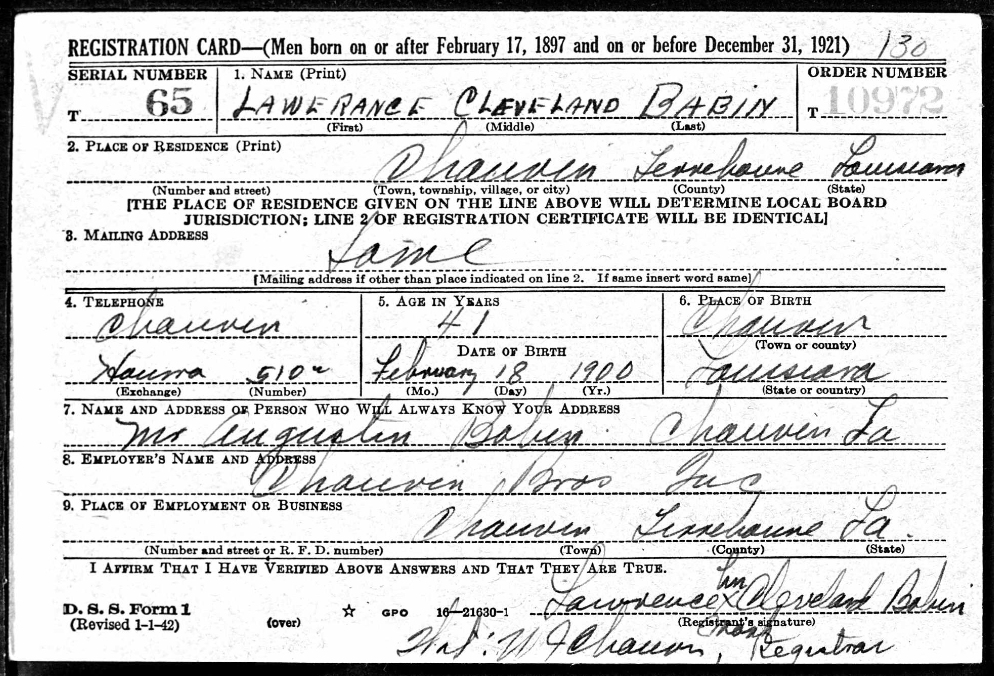 REGISTRATION CARD—(Men born on or after February 17, 1897 and on or before December 31, 1921) 130
SERIAL NUMBER 1. NAME (Print) ORDER NUMBER
T 65 LAWERANCE CLEVELAND BABIN T 10972
(First) (Middle) (Last)
2. PLACE OF RESIDENCE (Print)
Chauvin Terrebonne Louisiana
(Number and street) (Town, township, village, or city) (County) (State)
[THE PLACE OF RESIDENCE GIVEN ON THE LINE ABOVE WILL DETERMINE LOCAL BOARD
JURISDICTION; LINE 2 OF REGISTRATION CERTIFICATE WILL BE IDENTICAL]
3. MAILING ADDRESS
Same
[Mailing address if other than place indicated on line 2. If same insert word same]
4. TELEPHONE 5. AGE IN YEARS 6. PLACE OF BIRTH
Chauvin 41 Chauvin
DATE OF BIRTH (Town or county)
Houma 510 February 18 1900 Louisiana
(Exchange) (Number) (Mo.) (Day) (Yr.) (State or country)
7. NAME AND ADDRESS OF PERSON WHO WILL ALWAYS KNOW YOUR ADDRESS
Mr Augustin Babin Chauvin La
8. EMPLOYER'S NAME AND ADDRESS
Chauvin Bros Inc
9. PLACE OF EMPLOYMENT OR BUSINESS
Chauvin Terrebonne La.
(Number and street or R. F. D. number) (Town) (County) (State)
I AFFIRM THAT I HAVE VERIFIED ABOVE ANSWERS AND THAT THEY ARE TRUE.
his
D. S. S. Form 1 ☆ GPO 16—21630-1 Lawrence X Cleveland Babin
(Revised 1-1-42) (over) (Registrant's signature)
mark
Wit: W J Chauvin, Registrar